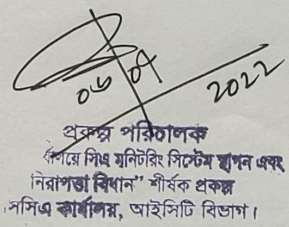 ০৬ ০৭ 2022
প্রকল্প পরিচালক
সিএ মনিটরিং সিস্টেম স্থাপন এবং
নিরাপত্তা বিধান" শীর্ষক প্রকল্প
সিসিএ কার্যালয়, আইসিটি বিভাগ।